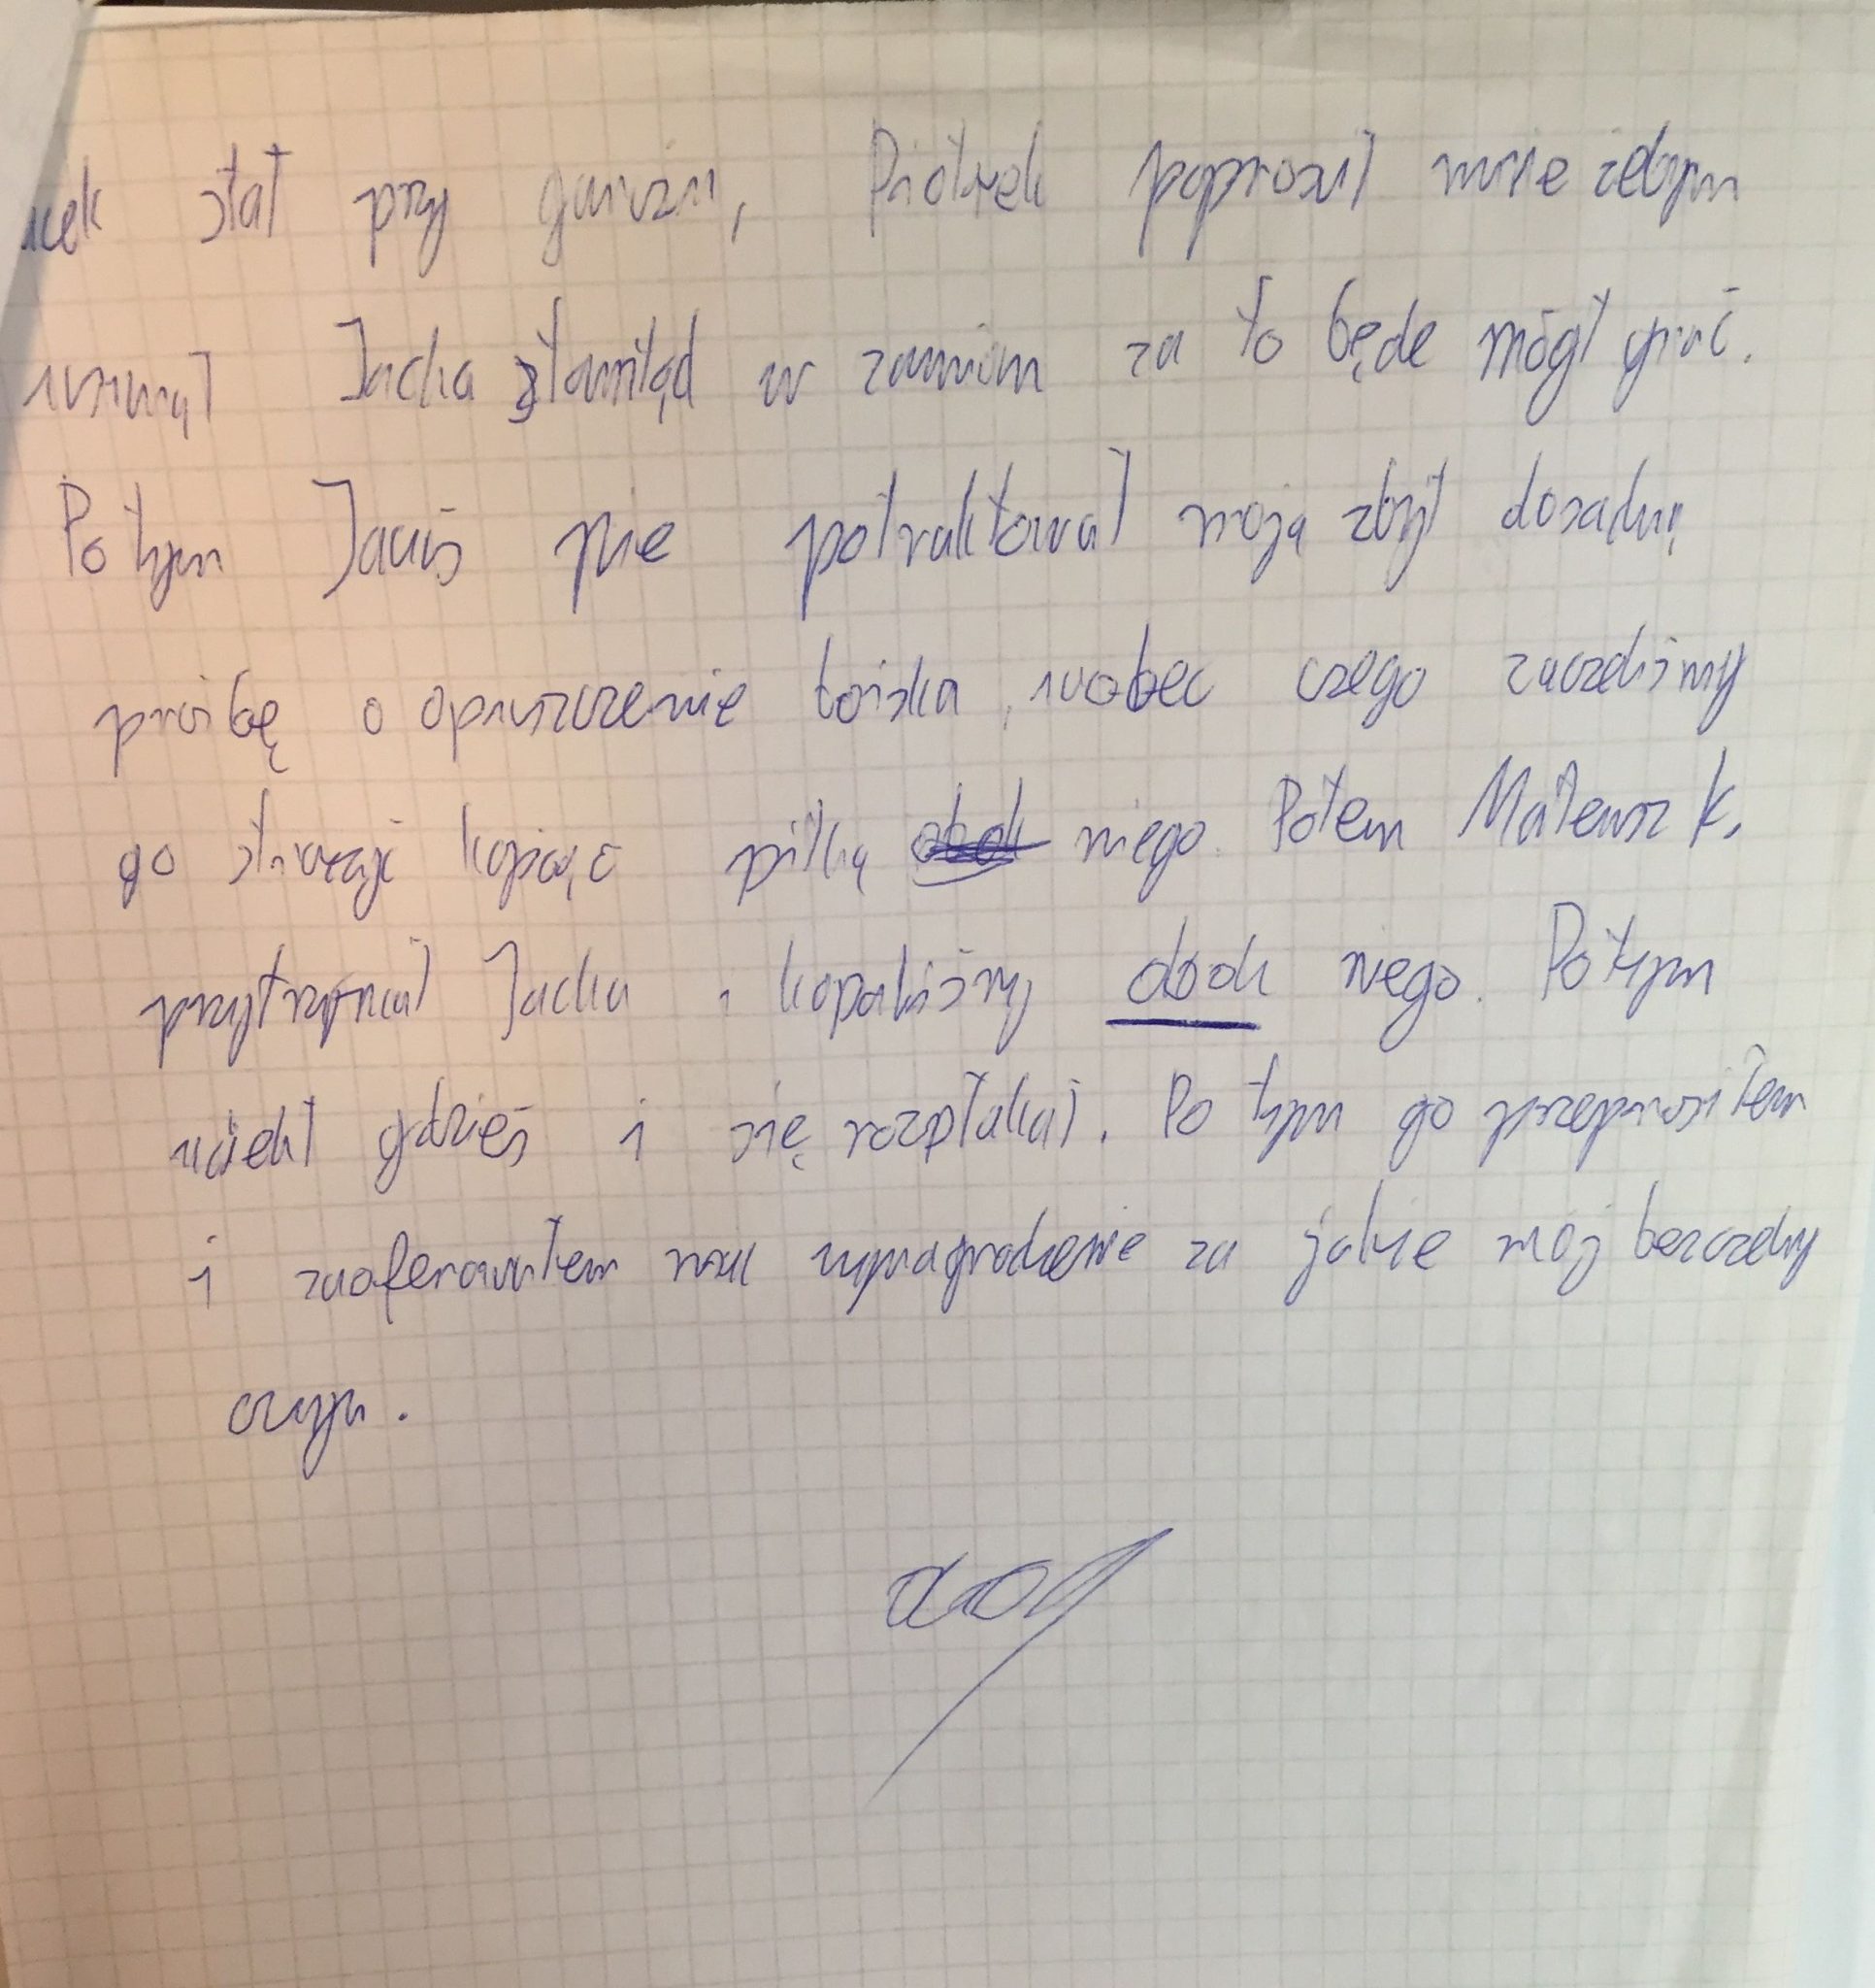 acek stał przy garażu, Piotrek poprosił mnie żebym
usunął Jacka stamtąd w zamian za to będe mógł grać.
Po tym Jacuś nie potraktował moją zbyt dosadną
prośbę o opuszczenie boiska, wobec czego zaczeliśmy
go straszyć kopiąc piłką niego. Potem Mateusz K.
przytrzymał Jacka i kopaliśmy obok niego. Po tym
uciekł gdzieś i się rozpłakał. Po tym go przeprosiłem
i zaoferowałem mu wynagrodzenie za jakże mój bezczelny
czyn.